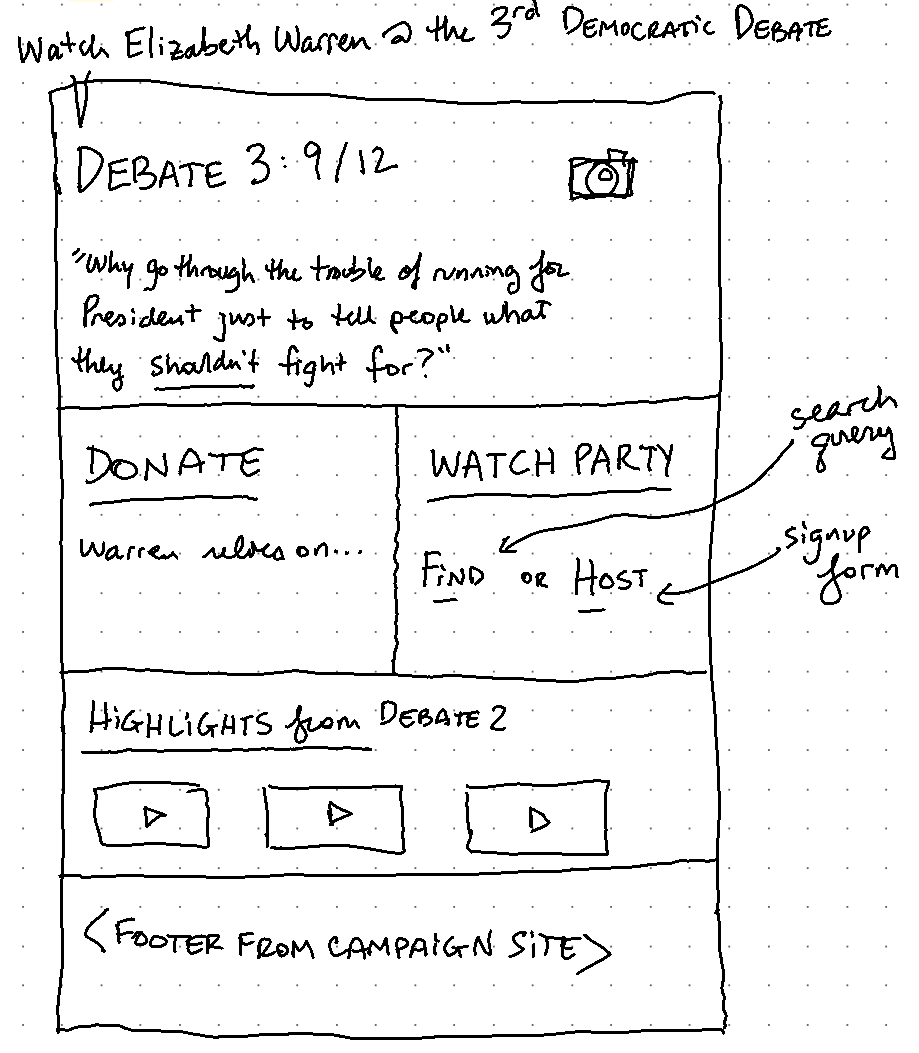 Watch Elizabeth Warren @ the 3rd DEMOCRATIC DEBATE
DEBATE 3: 9/12
"Why go through the trouble of running for
President just to tell people what
they shouldn't fight for?"
search
query
DONATE
WATCH PARTY
Warren relies on...
signup
form
FIND OR HOST
HIGHLIGHTS from DEBATE 2
<FOOTER FROM CAMPAIGN SITE>